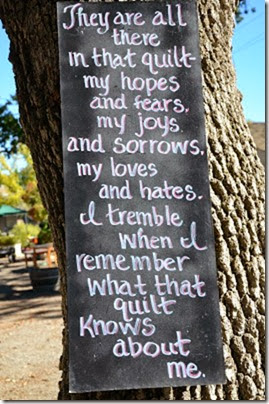 They are all
there
in that quilt-
my hopes
and fears,
my joys
and sorrows,
my loves
and hates.
I tremble
when I
remember
what that
quilt
knows
about
me.